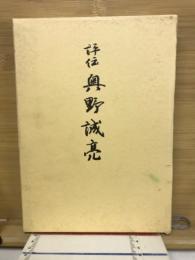 評伝 奥野誠亮